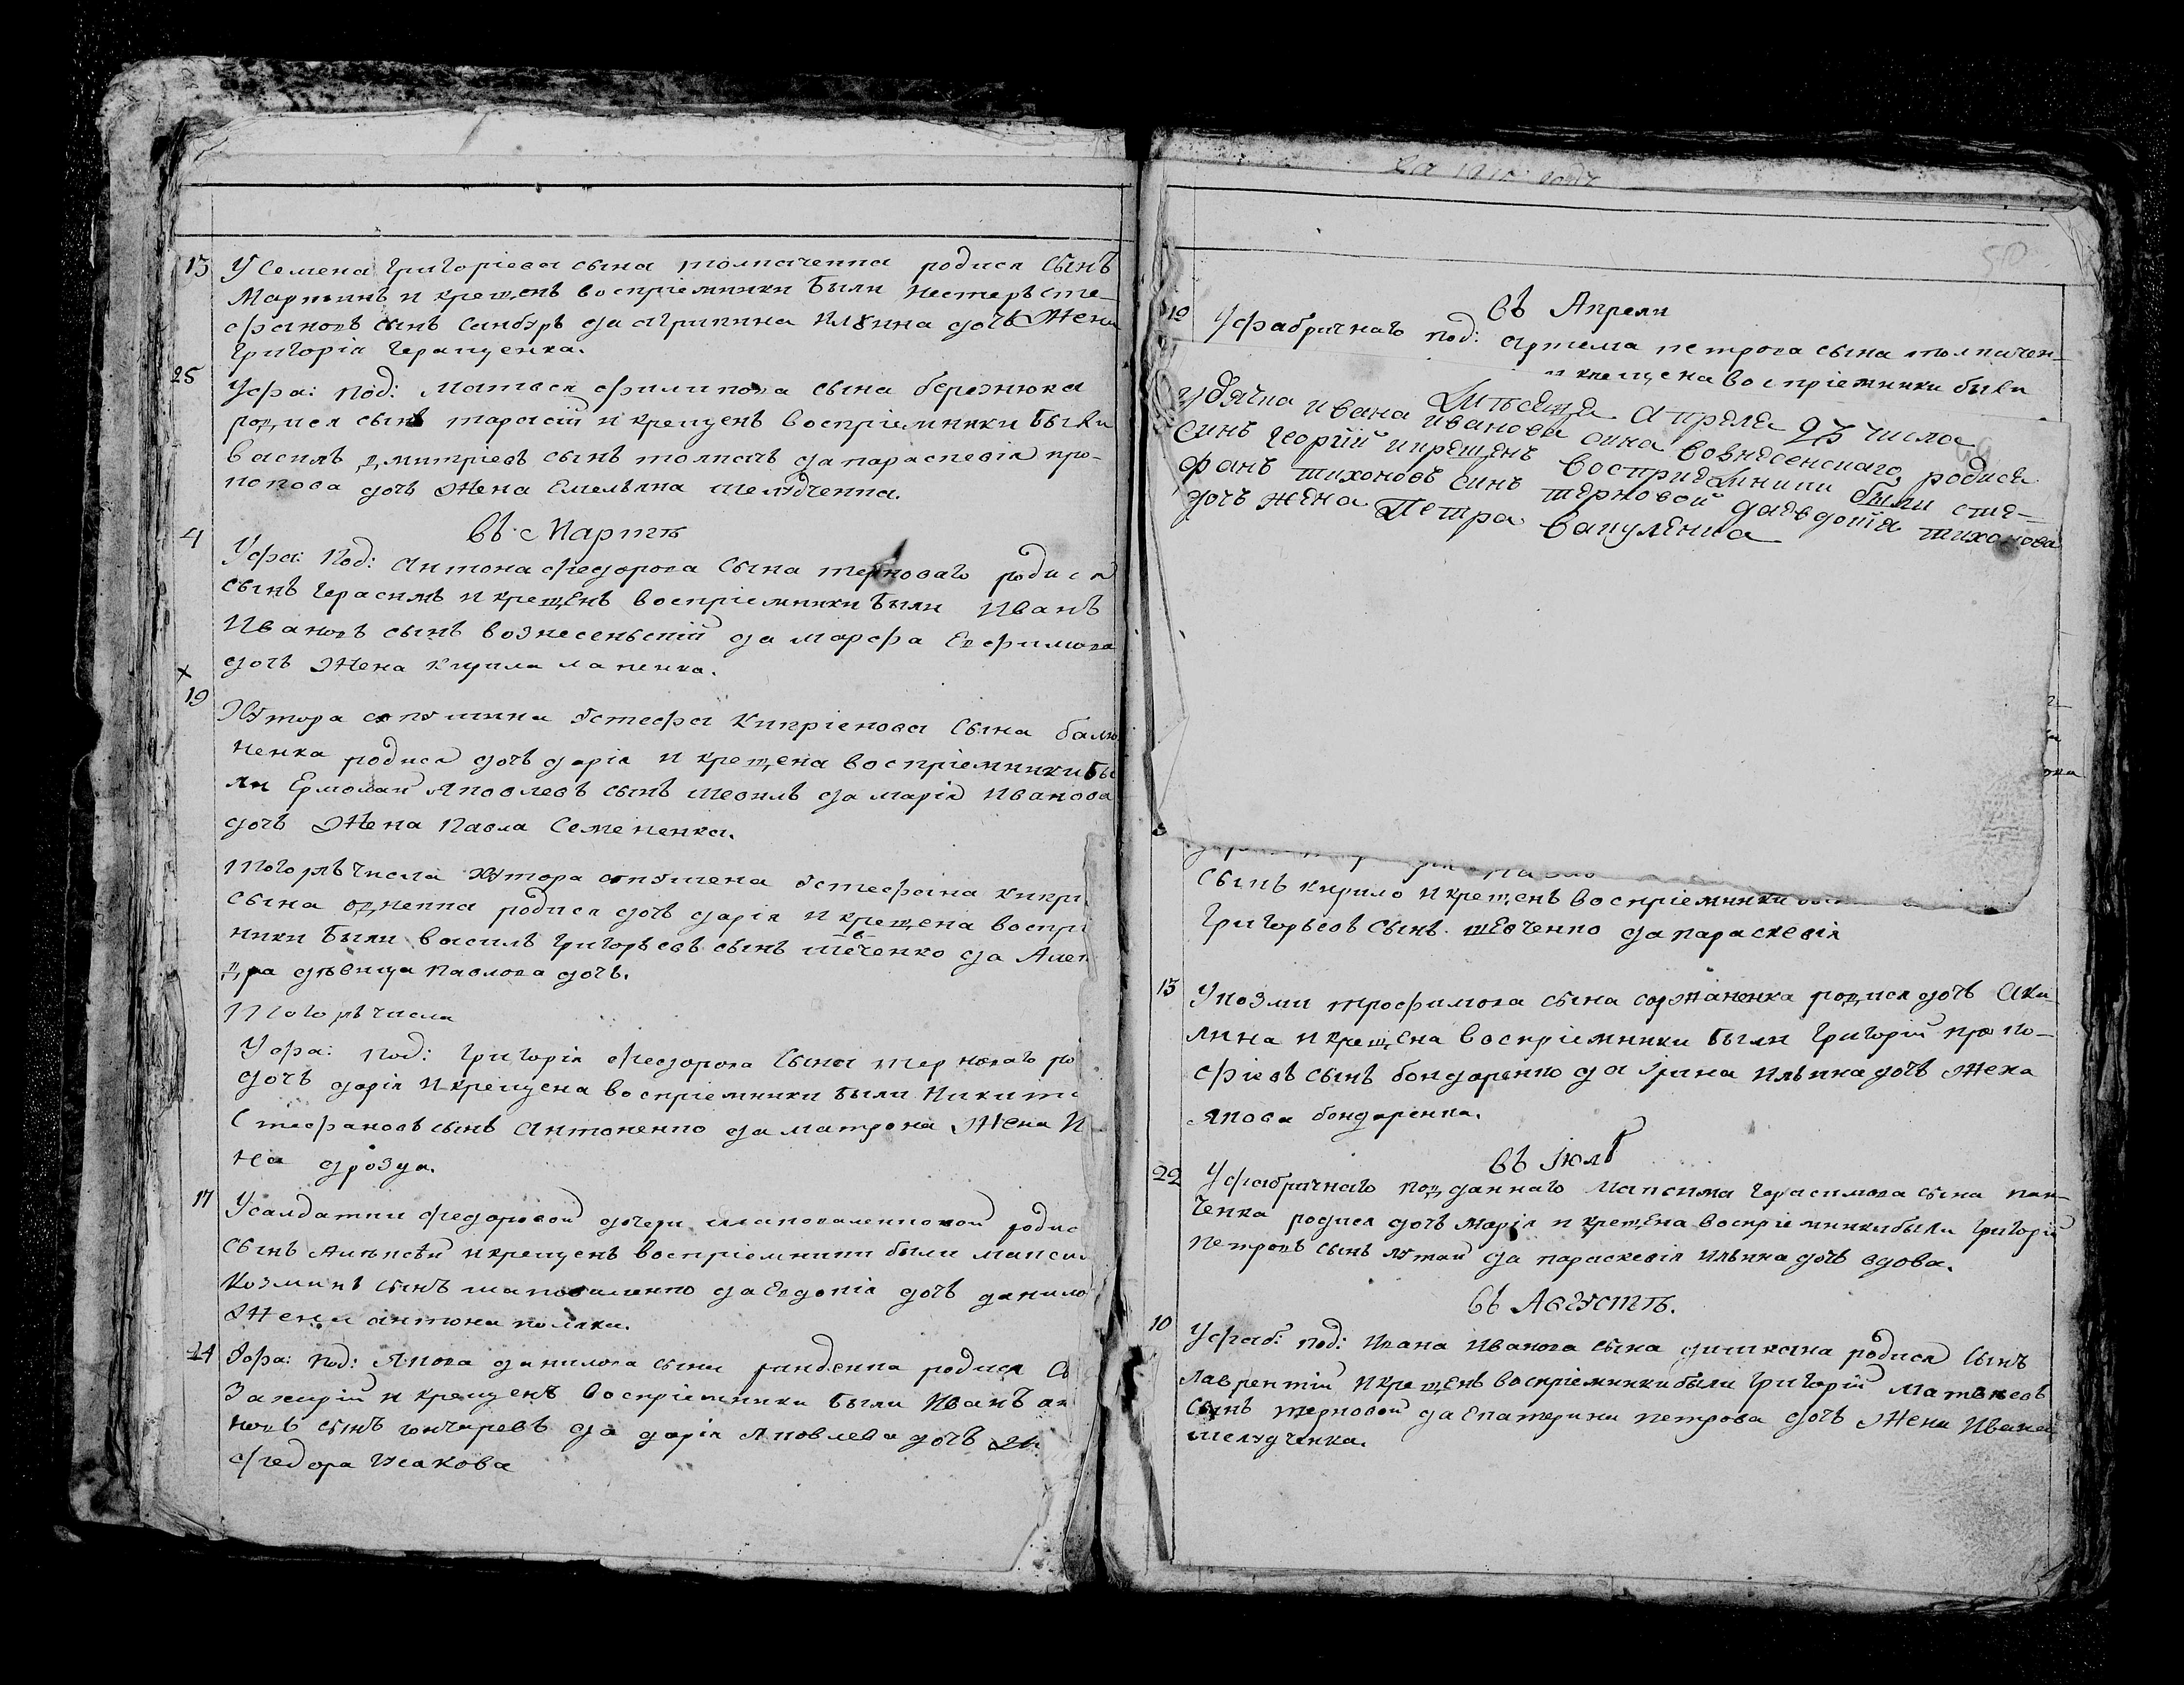 13 У Семена григоріева сына толпаченка родися сынъ
Мартинъ и крещенъ воспріемники были нестеръ сте-
фановъ сынъ синбэръ да агрипина ильина дочъ Жена
григорія геращенка.
25 У фа: под: Матвея филипова сына бережнюка
родися сынъ тарасій и крещенъ воспріемники были
василь дмитріевъ сынъ толпачъ да параскевія про-
попова дочъ Жена Емельяна шелудченка.
въ Мартѣ
4 У фа: под: Антона федорова сына терноваго родися
сынъ герасимъ и крещенъ воспріемники были Иванъ
Ивановъ сынъ вознесеньскій да марфа Евфимова
дочъ Жена кирила лапенка.
х
19 Хутора устефа кипріенова сына
ненка родися дочъ дарія и крещена воспріемники бы
ли Ермолай яковлевъ сынъ да марія Иванова
дочъ Жена Павла Семененка.
Тогожъ числа Хутора устефана кипри
сына родися дочъ дарія и крещена воспрі
ники были василь григорьевъ сынъ шевченко да Алек
дра дѣвица павлова дочъ.
Тогожъ числа
У фа: под: григорія федорова сына терноваго ро
дочъ дарія и крещена воспріемники были Никита
Стефановъ сынъ Антоненко да матрона Жена И
на дрозда.
17 У салдатки федоровой дочери шаповаленковой родис
сынъ Алексѣй и крещенъ воспріемники были максим
Козминъ сынъ шаповаленко да Евдокія дочъ данило
Жена антона поляки.
24 У фа: под: Якова данилова сына родися Сы
Захарій и крещенъ воспріемники были Иванъ
новъ сынъ гончаревъ да дарія яковлева дочъ
федора Усакова
годъ
50
въ Апрели
19 У фабричнаго под: артема петрова сына толпачен-
и крещена воспріемники были
Апреля 23 числа
У дячка ивана иванова сина вознесенскаго родися
синъ георгій и крещенъ воспріемники были сте-
фанъ тихоновъ синъ терновой да евдотія тихонова
дочъ жена Петра вакуленка
сынъ кирило и крещенъ воспріемники
григорьевъ сынъ шевченко да параскевія
13 У козми трофимова сына родися дочъ Аки-
лина и крещена воспріемники были григорій проко-
фіевъ сынъ бондаренко да ірина ильина дочъ жена
якова бондаренка.
въ Іюлѣ
22 У фабричнаго подданнаго максима герасимова сына пан-
ченка родися дочъ марія и крещена воспріемники были григорій
петровъ сынъ лутай да параскевія ильина дочъ вдова.
въ Августѣ.
10 У фаб: под: Ивана Иванова сына родися сынъ
Лаврентій и крещенъ воспріемники были григорій матвеевъ
сынъ терновой да Екатерина петрова дочъ Жена Ивана
шелудченка.